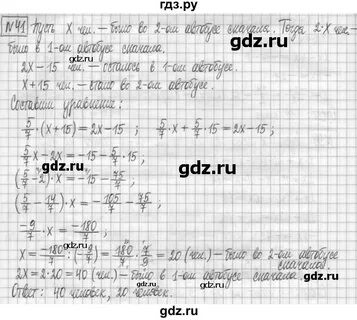 гдз.ру
№41 Пусть x чел. – было во 2-ом автобусе сначала. Тогда 2·x чел. –
было в 1-ом автобусе сначала.
2x – 15 чел. – осталось в 1-ом автобусе.
x + 15 чел. – стало во 2-ом автобусе.
Составим уравнение:
5/7 · (x + 15) = 2x – 15 ; 5/7 x + 5/7 · 15 = 2x – 15 ;
gdz.ru gdz.ru
5/7 x – 2x = – 15 – 5/7 · 15 ;
(5/7 – 2) · x = – 15 – 75/7 ;
(5/7 – 14/7) · x = – 105/7 – 75/7 ;
gdz.ru gdz.ru
–9/7 · x = –180/7 ;
x = –180/7 : (–9/7) = 180/7 · 7/9 = 20 (чел.) – было во 2-ом автобусе
сначала.
2x = 2·20 = 40 (чел.) – было в 1-ом автобусе сначала
Ответ: 40 человек, 20 человек.
gdz.ru gdz.ru